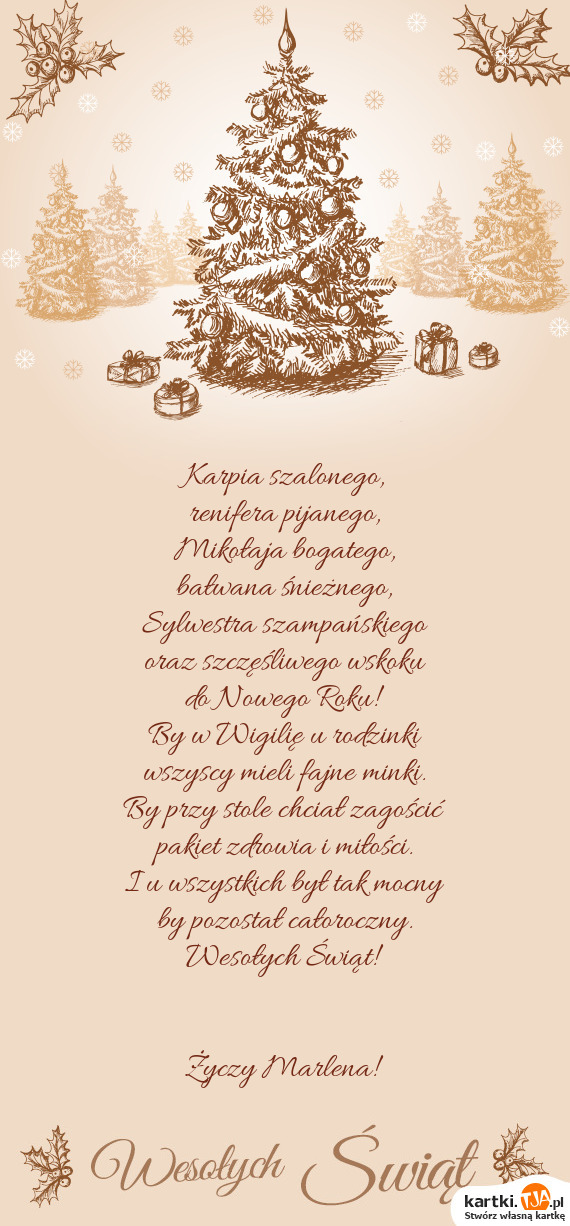 Karpia szalonego,
renifera pijanego,
Mikołaja bogatego,
bałwana śnieżnego,
Sylwestra szampańskiego
oraz szczęśliwego wskoku
do Nowego Roku!
By w Wigilię u rodzinki
wszyscy mieli fajne minki.
By przy stole chciał zagościć
pakiet zdrowia i miłości.
I u wszystkich był tak mocny
by pozostał całoroczny.
Wesołych Świąt!
Życzy Marlena!
Wesołych Świąt
kartki.TJA.pl
Stwórz własną kartkę